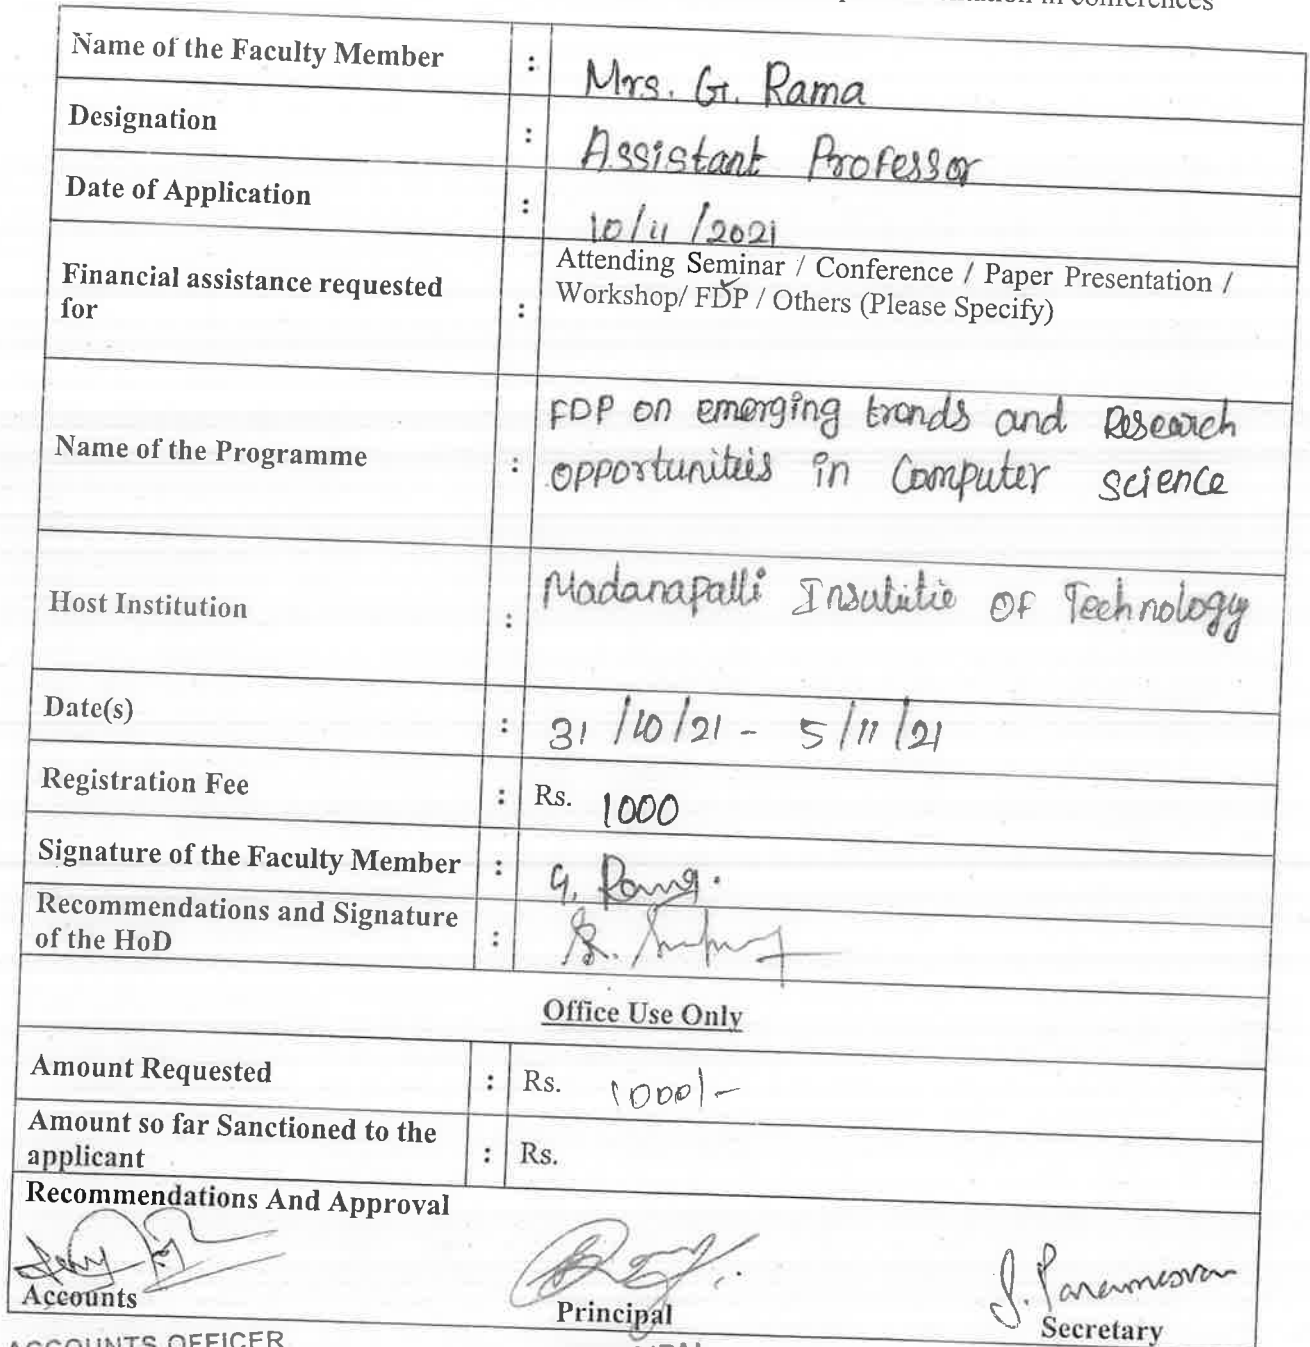 in conferences
Name of the Faculty Member : Mrs. G. Rama
Designation : Assistant Professor
Date of Application : 10/11/2021
Financial assistance requested for : Attending Seminar / Conference / Paper Presentation /
Workshop/ FDP / Others (Please Specify)
Name of the Programme : FDP on emerging trands and Research
opportunitieis in Computer science
Host Institution : Madanapalli Insutitie OF Technology
Date(s) : 31/10/21 - 5/11/21
Registration Fee : Rs. 1000
Signature of the Faculty Member : G. Rama.
Recommendations and Signature
of the HoD :
Office Use Only
Amount Requested : Rs. 1000/-
Amount so far Sanctioned to the
applicant : Rs.
Recommendations And Approval
J. Parameswaran
Accounts Principal Secretary
ACCOUNTS OFFICER